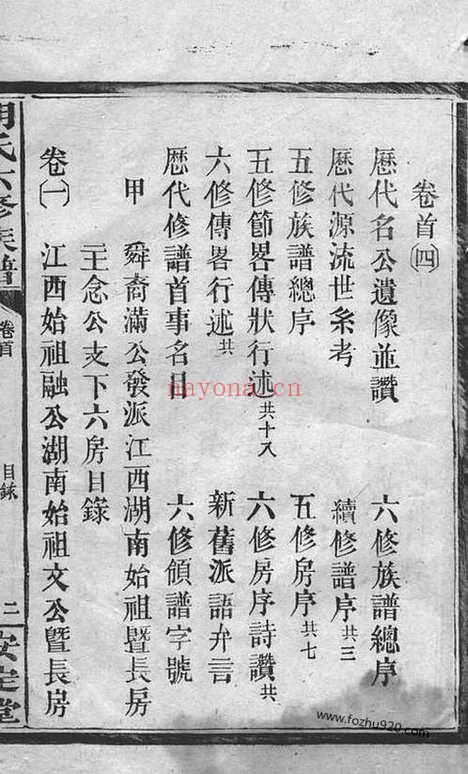 卷首㊃
歷代名公遺像並讚　六修族譜總序
歷代源流世系考　續修譜序共三
五修族譜總序　五修房序共七
五修節畧傳狀行述共十八　六修房序詩讚共
六修傳畧行述共　新舊派語弁言
歷代修譜首事名目　六修領譜字號
甲　舜裔滿公發派江西湖南始祖暨長房
王念公支下六房目錄
卷㊀　江西始祖融公湖南始祖文公暨長房
胡氏六修族譜　卷首　目錄　二　安定堂
nayona.cn
www.fozhu920.com